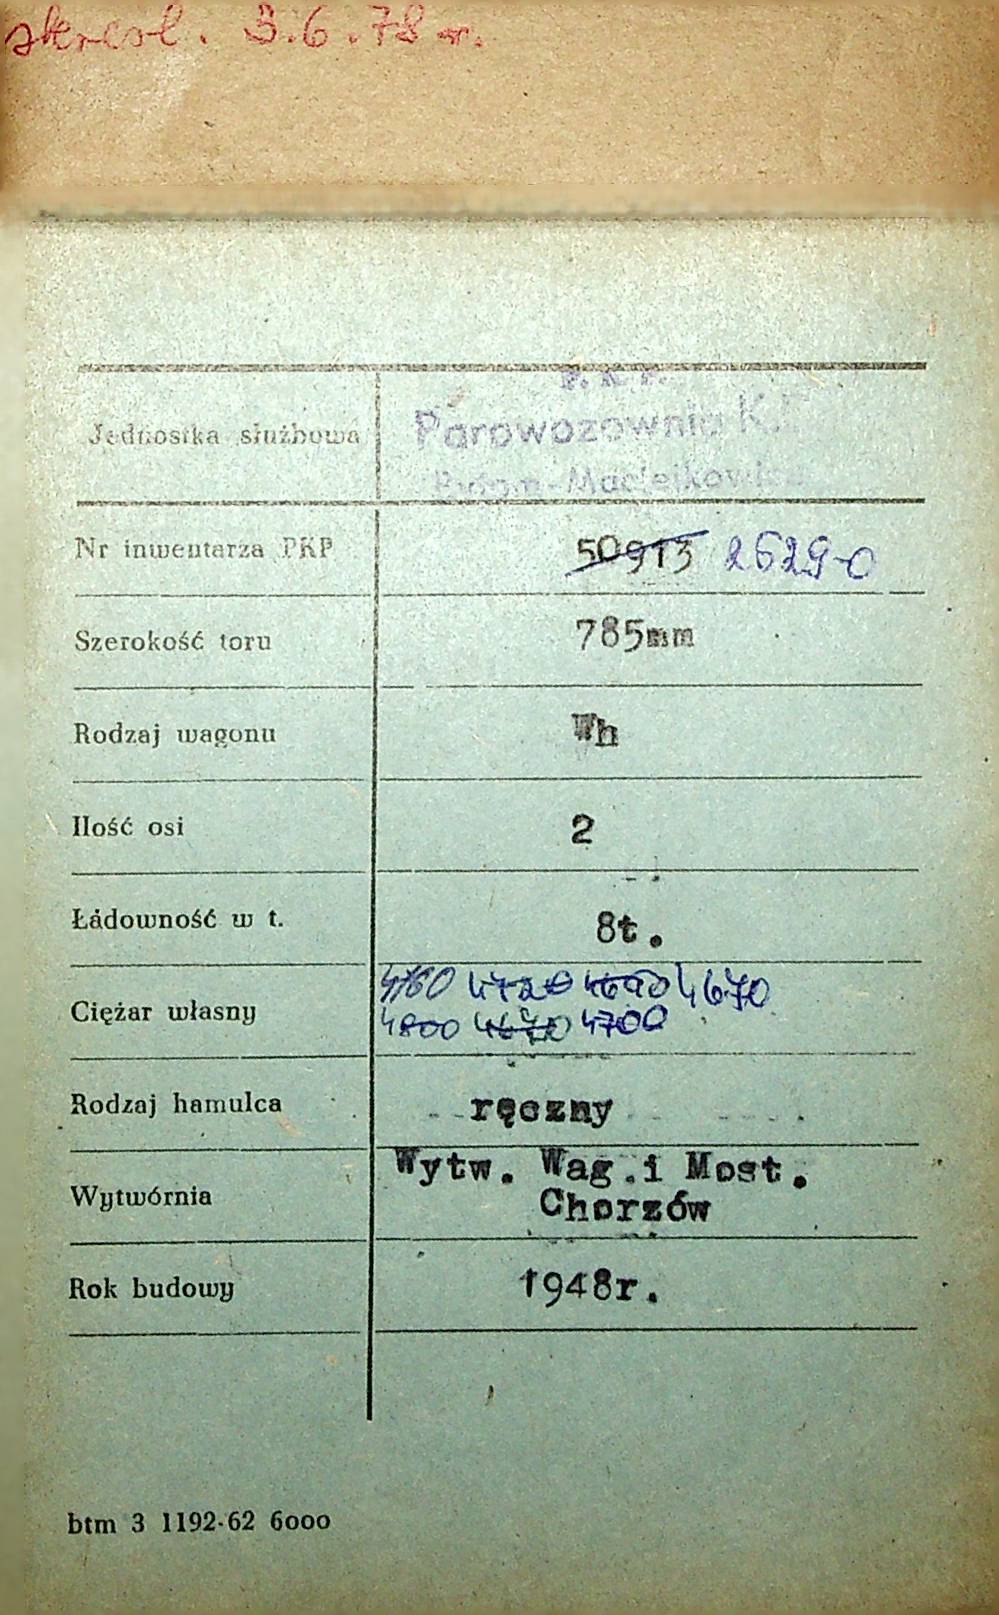 skreśl. 3.6.78 r.
P.K.P.
Jednostka służbowa Parowozownia
Bytom-Maciejkowice
Nr inwentarza PKP 50913 2629-0
Szerokość toru 785mm
Rodzaj wagonu Wh
Ilość osi 2
Ładowność w t. 8t.
4160 4720 4690 4670
Ciężar własny
4800 4670 4700
Rodzaj hamulca ręczny
Wytw. Wag.i Most.
Wytwórnia Chorzów
Rok budowy 1948r.
btm 3 1192-62 6000